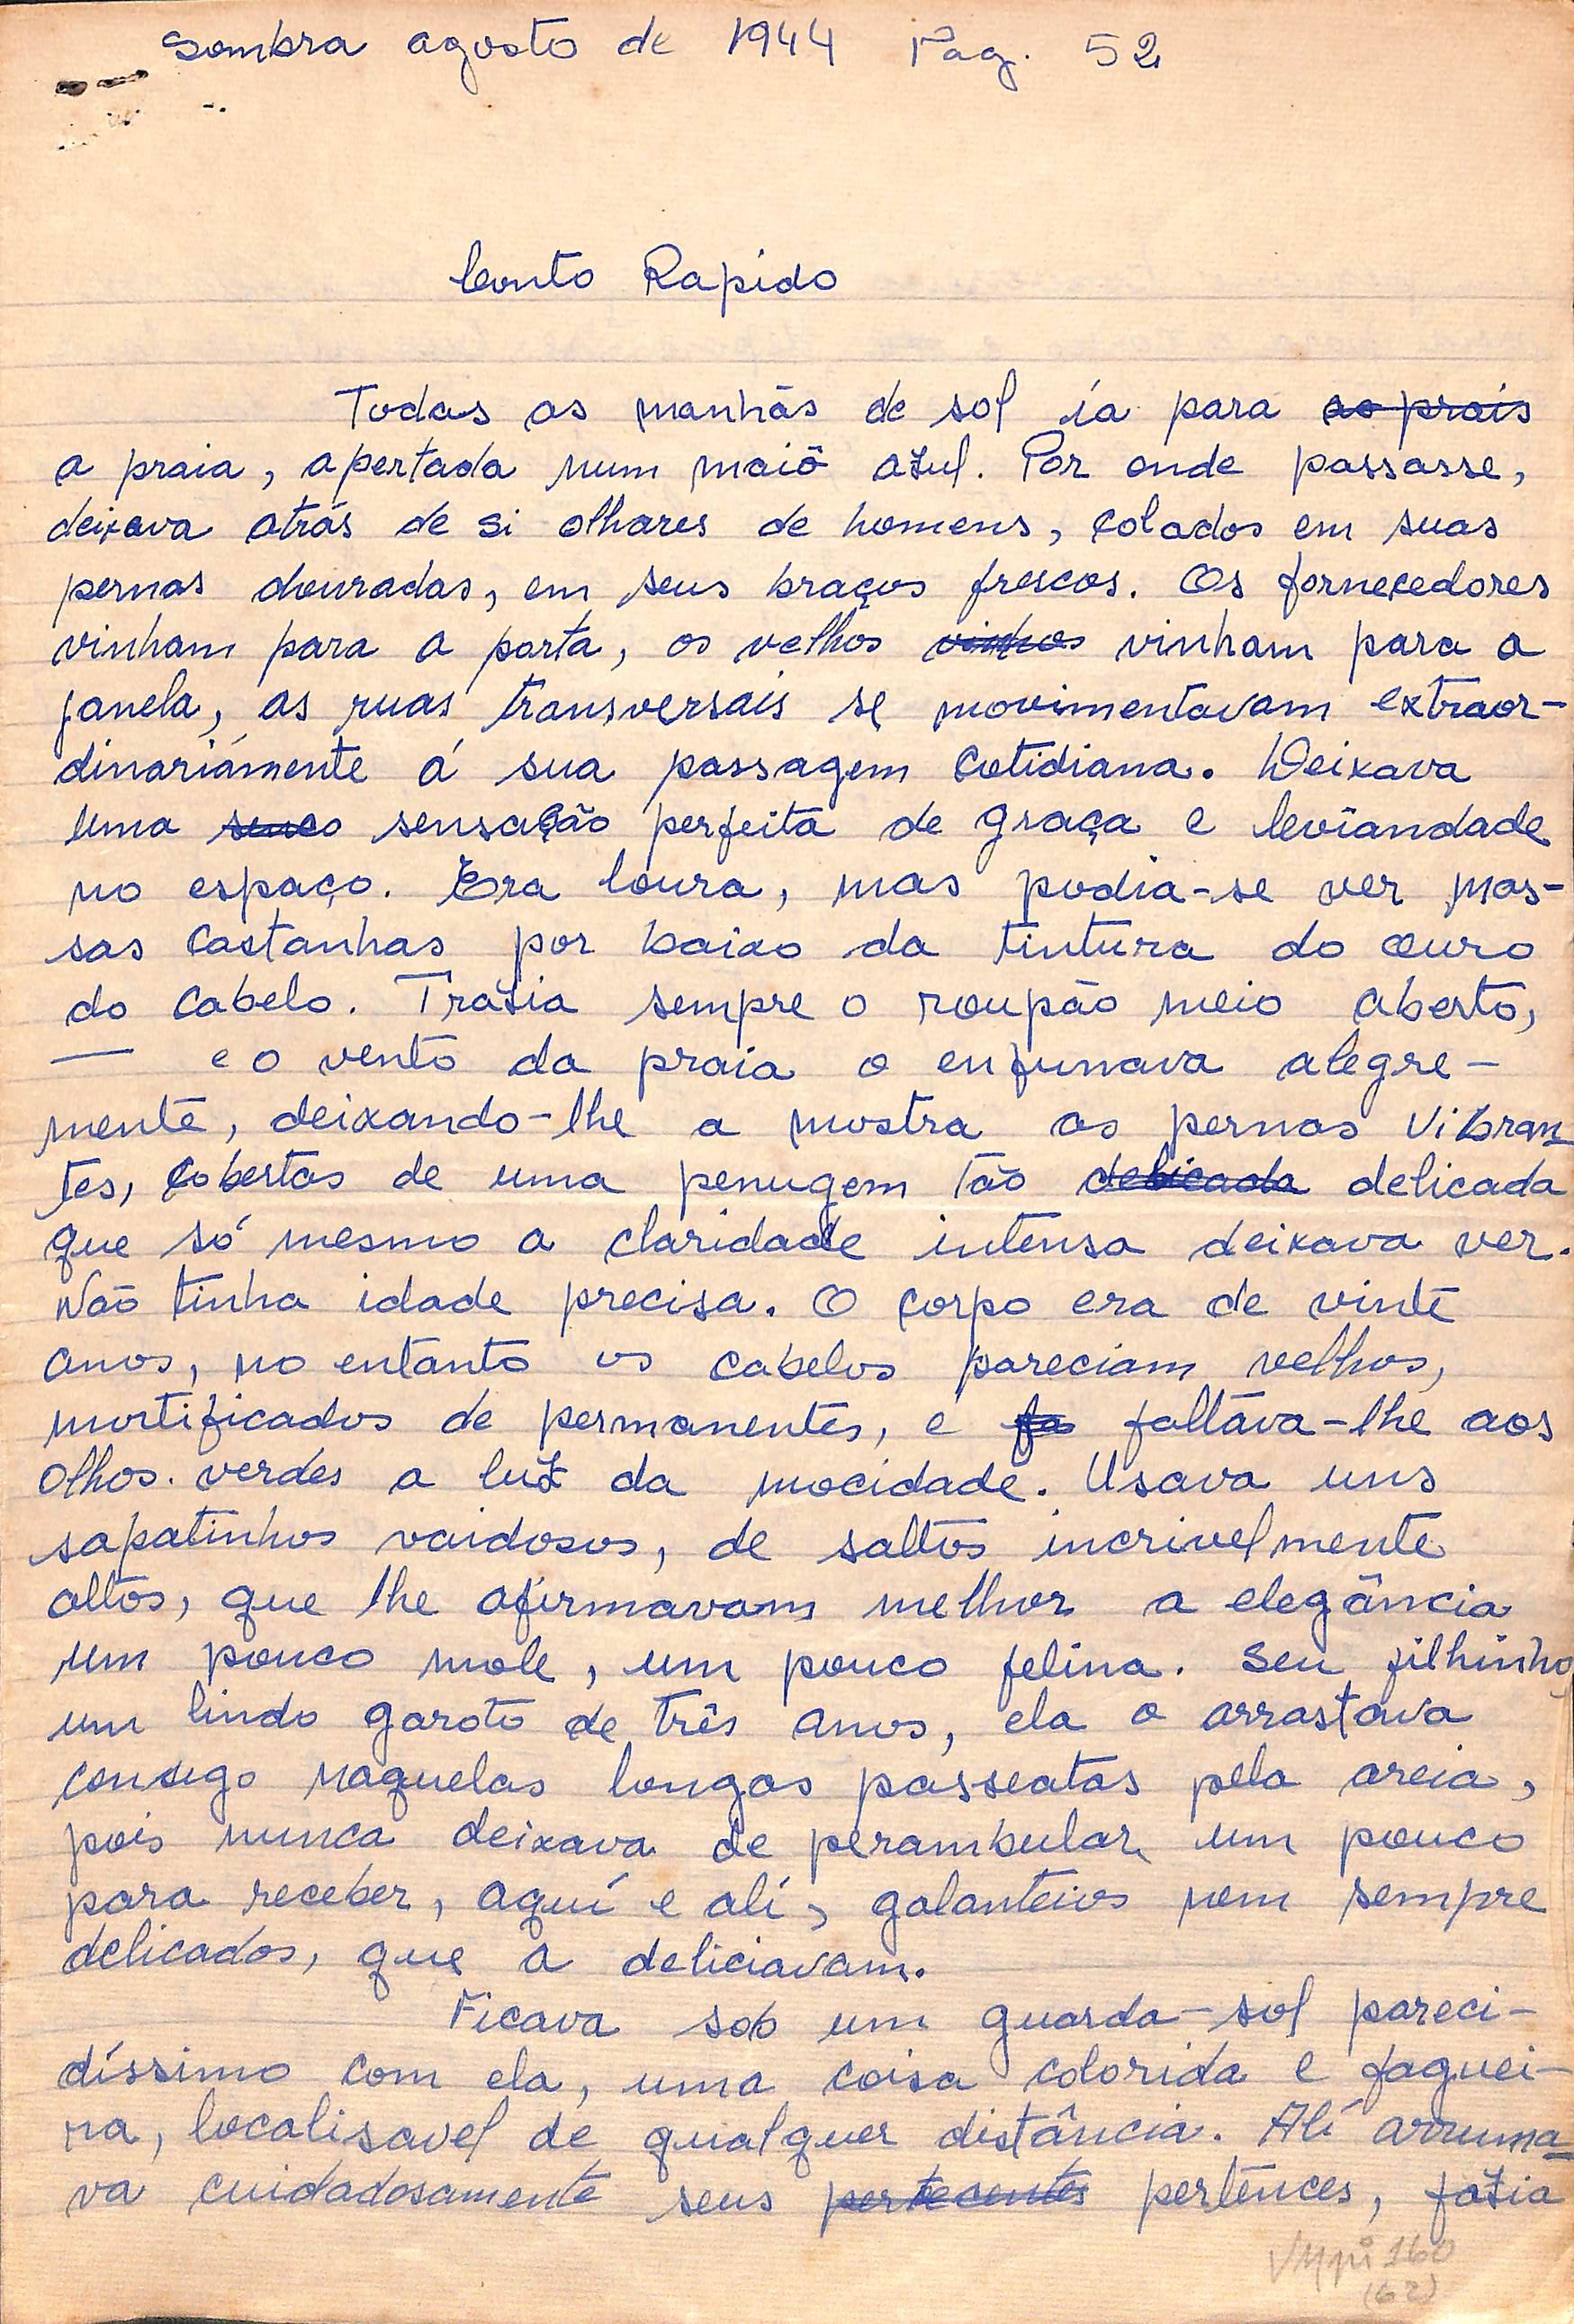 Sombra agosto de 1944 Pag. 52
Conto Rapido
Todas as manhãs de sol ía para ao prais
a praia, apertada num maiô azul. Por onde passasse,
deixava atrás de si olhares de homens, colados em suas
pernas douradas, em seus braços frescos. Os fornecedores
vinham para a porta, os velhos vinhos vinham para a
janela, as ruas transversais se movimentavam extraor-
dináriamente á sua passagem cotidiana. Deixava
uma sensação perfeita de graça e leviandade
no espaço. Era loura, mas podia-se ver mas-
sas castanhas por baixo da tintura do ouro
do cabelo. Trazia sempre o roupão meio aberto,
— e o vento da praia o enfunava alegre-
mente, deixando-lhe a mostra as pernas vibran-
tes, cobertas de uma penugem tão delicada delicada
que só mesmo a claridade intensa deixava ver.
Não tinha idade precisa. O corpo era de vinte
anos, no entanto os cabelos pareciam velhos,
mortificados de permanentes, e fa faltava-lhe aos
olhos. verdes a luz da mocidade. Usava uns
sapatinhos vaidosos, de saltos incrivelmente
altos, que lhe afirmavam melhor a elegância
um pouco mole, um pouco felina. Seu filhinho,
um lindo garoto de três anos, ela o arrastava
consigo naquelas longas passeatas pela areia,
pois nunca deixava de perambular um pouco
para receber, aquí e alí, galanteios nem sempre
delicados, que a deliciavam.
Ficava sob um guarda-sol pareci-
díssimo com ela, uma coisa colorida e faguei-
ra, localisavel de qualquer distância. Alí arruma-
va cuidadosamente seus pertecentes pertences, fazia
VMpi 160
(62)